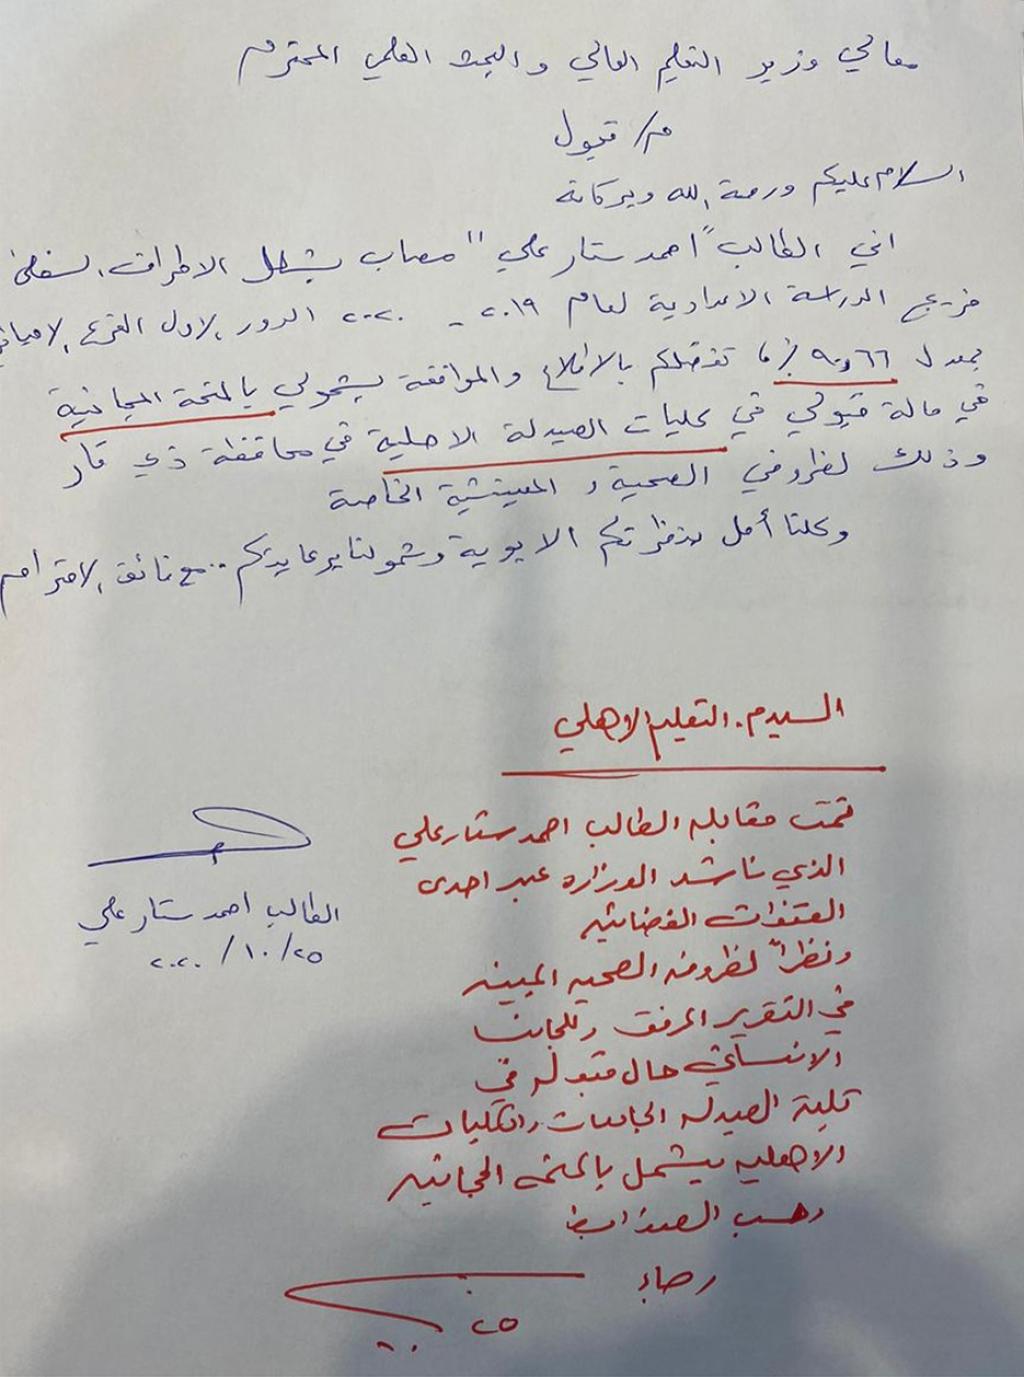 معالي وزير التعليم العالي والبحث العلمي المحترم
م/ قبول
السلام عليكم ورحمة الله وبركاته
اني الطالب "احمد ستار علي" مصاب بشلل الاطراف السفلى
خريج الدراسة الاعدادية لعام ٢٠١٩ - ٢٠٢٠ الدور الاول الفرع الاحيائي
بمعدل ٩٠,٦٦٪ تفضلكم بالاطلاع والموافقة بشمولي بالمنحة المجانية
في حالة قبولي في كليات الصيدلة الاهلية في محافظة ذي قار
وذلك لظروفي الصحية و المعيشية الخاصة
وكلنا أمل بنظرتكم الابوية وشمولنا برعايتكم .. مع فائق الاحترام
السيد م. التعليم الاهلي
تمت مقابلة الطالب احمد ستار علي
الذي ناشد الوزاره عبر احدى
القنوات الفضائيه
ونظراً لظروفه الصحيه المبينه
في التقرير المرفق وللجانب
الانساني حال قبوله في
كلية الصيدله الجامعات والكليات
الاهليه يشمل بالمنحه المجانيه
وحسب الضوابط
رجاء
٢٥
الطالب احمد ستار علي
٢٠٢٠/١٠/٢٥